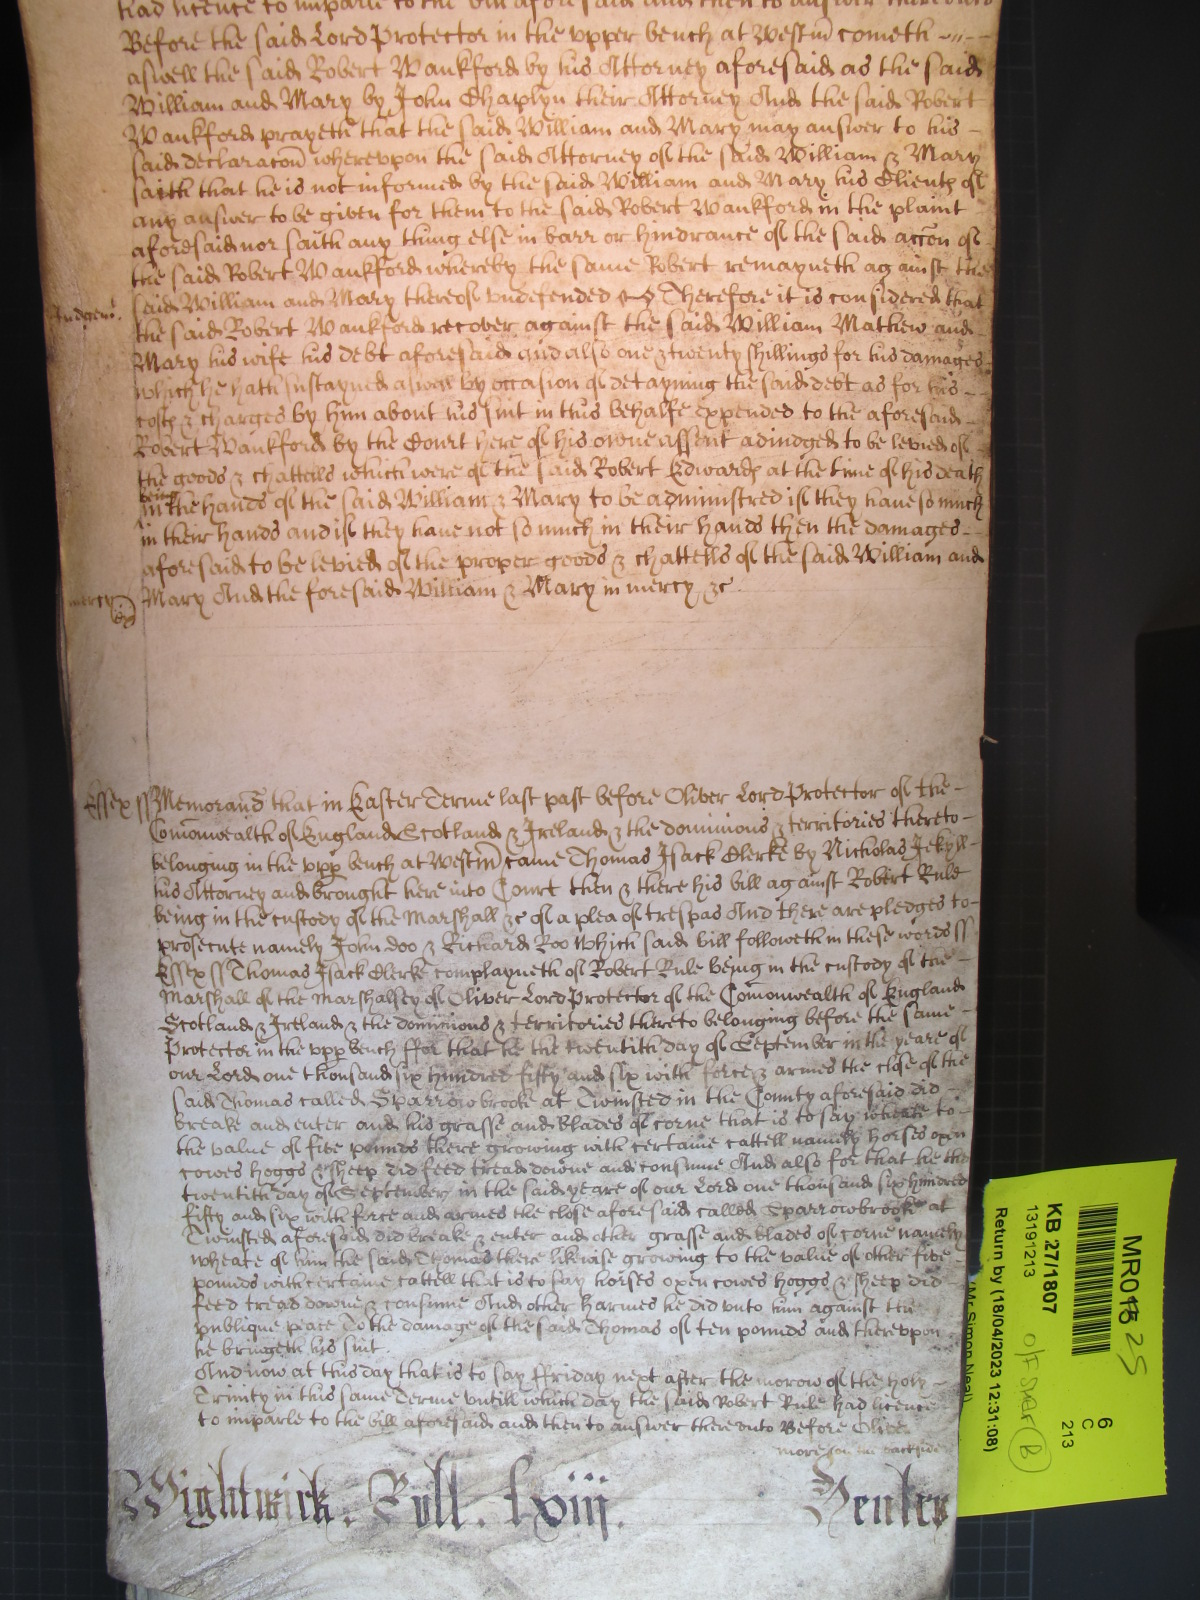 had licence to imparle to the bill aforesaid and then to answer thereunto
Before the said Lord Protector in the upper bench at Westm̄ cometh
aswell the said Robert Wankford by his Attorney aforesaid as the said
William and Mary by John Chaplyn their Attorney And the said Robert
Wankford prayeth that the said William and Mary may answer to his
said declaracōn whereupon the said Attorney of the said William & Mary
saith that he is not informed by the said William and Mary his Clients of
any answer to be given for them to the said Robert Wankford in the plaint
aforesaid nor saith any thing else in barr or hindrance of the said accōn of
the said Robert Wankford whereby the same Robert remayneth against the
Judgem̄t. said William and Mary thereof undefended Therefore it is considered that
the said Robert Wankford recover against the said William Mathew and
Mary his wife his debt aforesaid and also one & twenty shillings for his damages
which he hath sustayned aswell by occasion of detayning the said debt as for his
costs & charges by him about his suit in this behalfe expended to the aforesaid
Robert Wankford by the Court here of his owne assent adiudged to be levied of
the goods & chattells which were of the said Robert Edwards at the time of his death
being in the hands of the said William & Mary to be administred if they have so much
in their hands and if they have not so much in their hands then the damages
aforesaid to be levied of the proper goods & chattells of the said William and
mercy Mary And the foresaid William & Mary in mercy &c
Essex ss Memorand̄ that in Easter Terme last past before Oliver Lord Protector of the
Com̄onwealth of England Scotland & Ireland & the dominions & territories thereto
belonging in the upp bench at Westm̄ came Thomas Isack Clerke by Nicholas Jekyll
his Attorney and brought here into Court then & there his bill against Robert Rule
being in the custody of the Marshall &c of a plea of trespas And there are pledges to
prosecute namely John Doo & Richard Roo Which said bill followeth in these words ss
Essex ss Thomas Isack Clerke complayneth of Robert Rule being in the custody of the
Marshall of the Marshalsey of Oliver Lord Protector of the Com̄onwealth of England
Scotland & Ireland & the dominions & territories thereto belonging before the same
Protector in the upp bench ffor that he the twentith day of September in the yeare of
our Lord one thousand six hundred fifty and six with force & armes the close of the
said Thomas called Sparrowbrooke at Twinsted in the County aforesaid did
breake and enter and his grasse and blades of corne that is to say wheate to
the value of five pounds there growing with certaine cattell namely horses oxen
cowes hoggs & sheep did feed tread downe and consume And also for that he the
twentith day of September in the said yeare of our Lord one thousand six hundred
fifty and six with force and armes the close aforesaid called Sparrowbrooke at
Twinsted aforesaid did breake & enter and other grasse and blades of corne namely
wheate of him the said Thomas there likewise growing to the value of other five
pounds with certaine cattell that is to say horses oxen cowes hoggs & sheep did
feed tread downe & consume And other harmes he did unto him against the
publique peace To the damage of the said Thomas of ten pounds and thereupon
he bringeth his suit.
And now at this day that is to say ffriday next after the morow of the holy
Trinity in this same Terme untill which day the said Robert Rule had licence
to imparle to the bill aforesaid and then to answer thereunto Before Oliver
more on the backside
Wightwick. Roll. lxiij.
MR01825
6
C
213
KB 27/1807
13191213
Return by (18/04/2023 12:31:08)
(Mr Simon Neal)
B